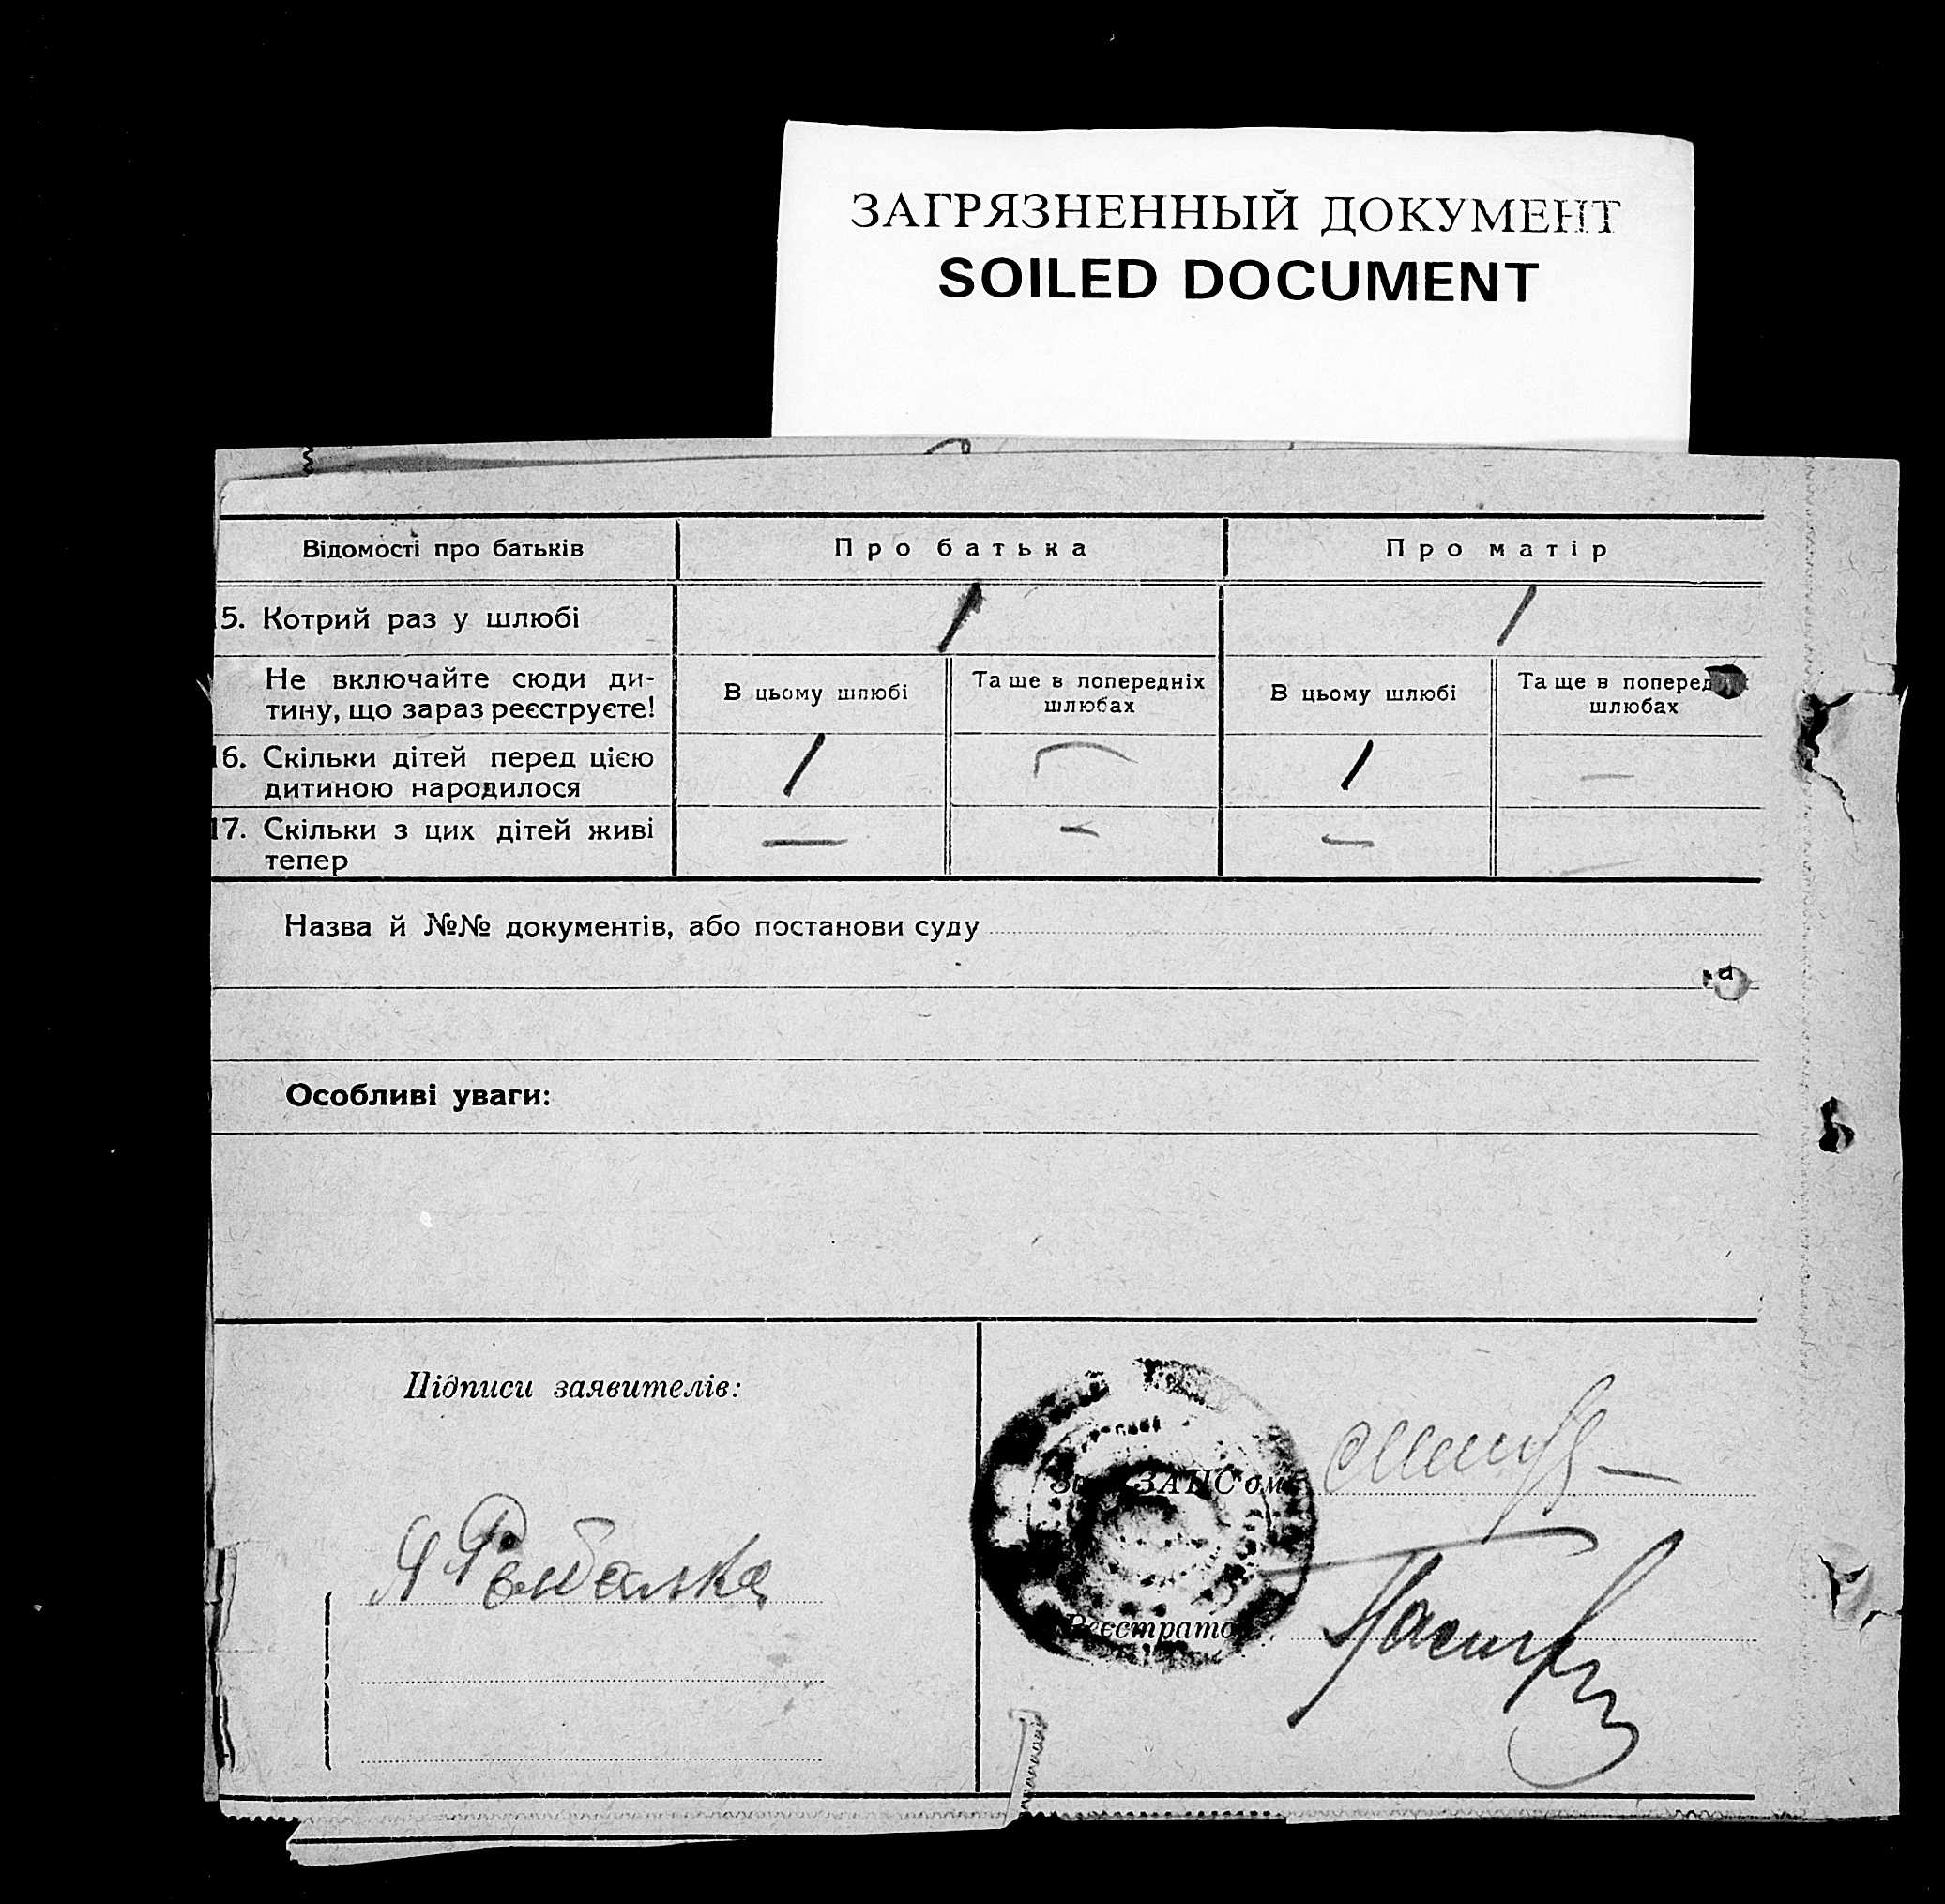 ЗАГРЯЗНЕННЫЙ ДОКУМЕНТ
SOILED DOCUMENT
Відомості про батьків
Про батька
Про матір
15. Котрий раз у шлюбі
/
/
Не включайте сюди ди-
тину, що зараз реєструєте!
В цьому шлюбі
Та ще в попередніх
шлюбах
В цьому шлюбі
Та ще в поперед
шлюбах
16. Скільки дітей перед цією
дитиною народилося
/
/
—
17. Скільки з цих дітей живі
тепер
—
—
—
—
Назва й №№ документів, або постанови суду
Особливі уваги:
Підписи заявителів:
ЗАПС'ом
Реєстрато